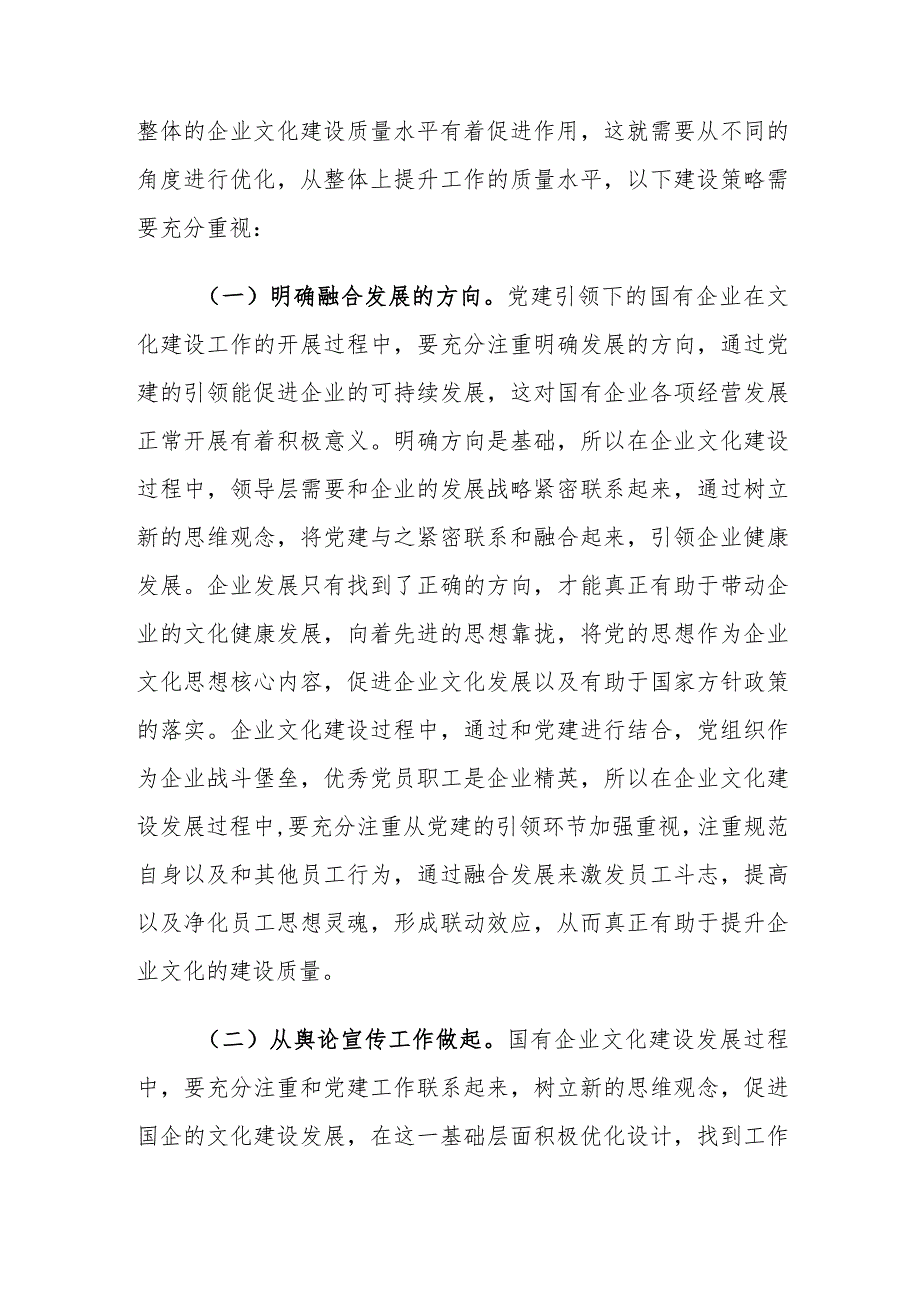 整体的企业文化建设质量水平有着促进作用，这就需要从不同的
角度进行优化，从整体上提升工作的质量水平，以下建设策略需
要充分重视：
（一）明确融合发展的方向。党建引领下的国有企业在文
化建设工作的开展过程中，要充分注重明确发展的方向，通过党
建的引领能促进企业的可持续发展，这对国有企业各项经营发展
正常开展有着积极意义。明确方向是基础，所以在企业文化建设
过程中，领导层需要和企业的发展战略紧密联系起来，通过树立
新的思维观念，将党建与之紧密联系和融合起来，引领企业健康
发展。企业发展只有找到了正确的方向，才能真正有助于带动企
业的文化健康发展，向着先进的思想靠拢，将党的思想作为企业
文化思想核心内容，促进企业文化发展以及有助于国家方针政策
的落实。企业文化建设过程中，通过和党建进行结合，党组织作
为企业战斗堡垒，优秀党员职工是企业精英，所以在企业文化建
设发展过程中,要充分注重从党建的引领环节加强重视，注重规范
自身以及和其他员工行为，通过融合发展来激发员工斗志，提高
以及净化员工思想灵魂，形成联动效应，从而真正有助于提升企
业文化的建设质量。
（二）从舆论宣传工作做起。国有企业文化建设发展过程
中，要充分注重和党建工作联系起来，树立新的思维观念，促进
国企的文化建设发展，在这一基础层面积极优化设计，找到工作